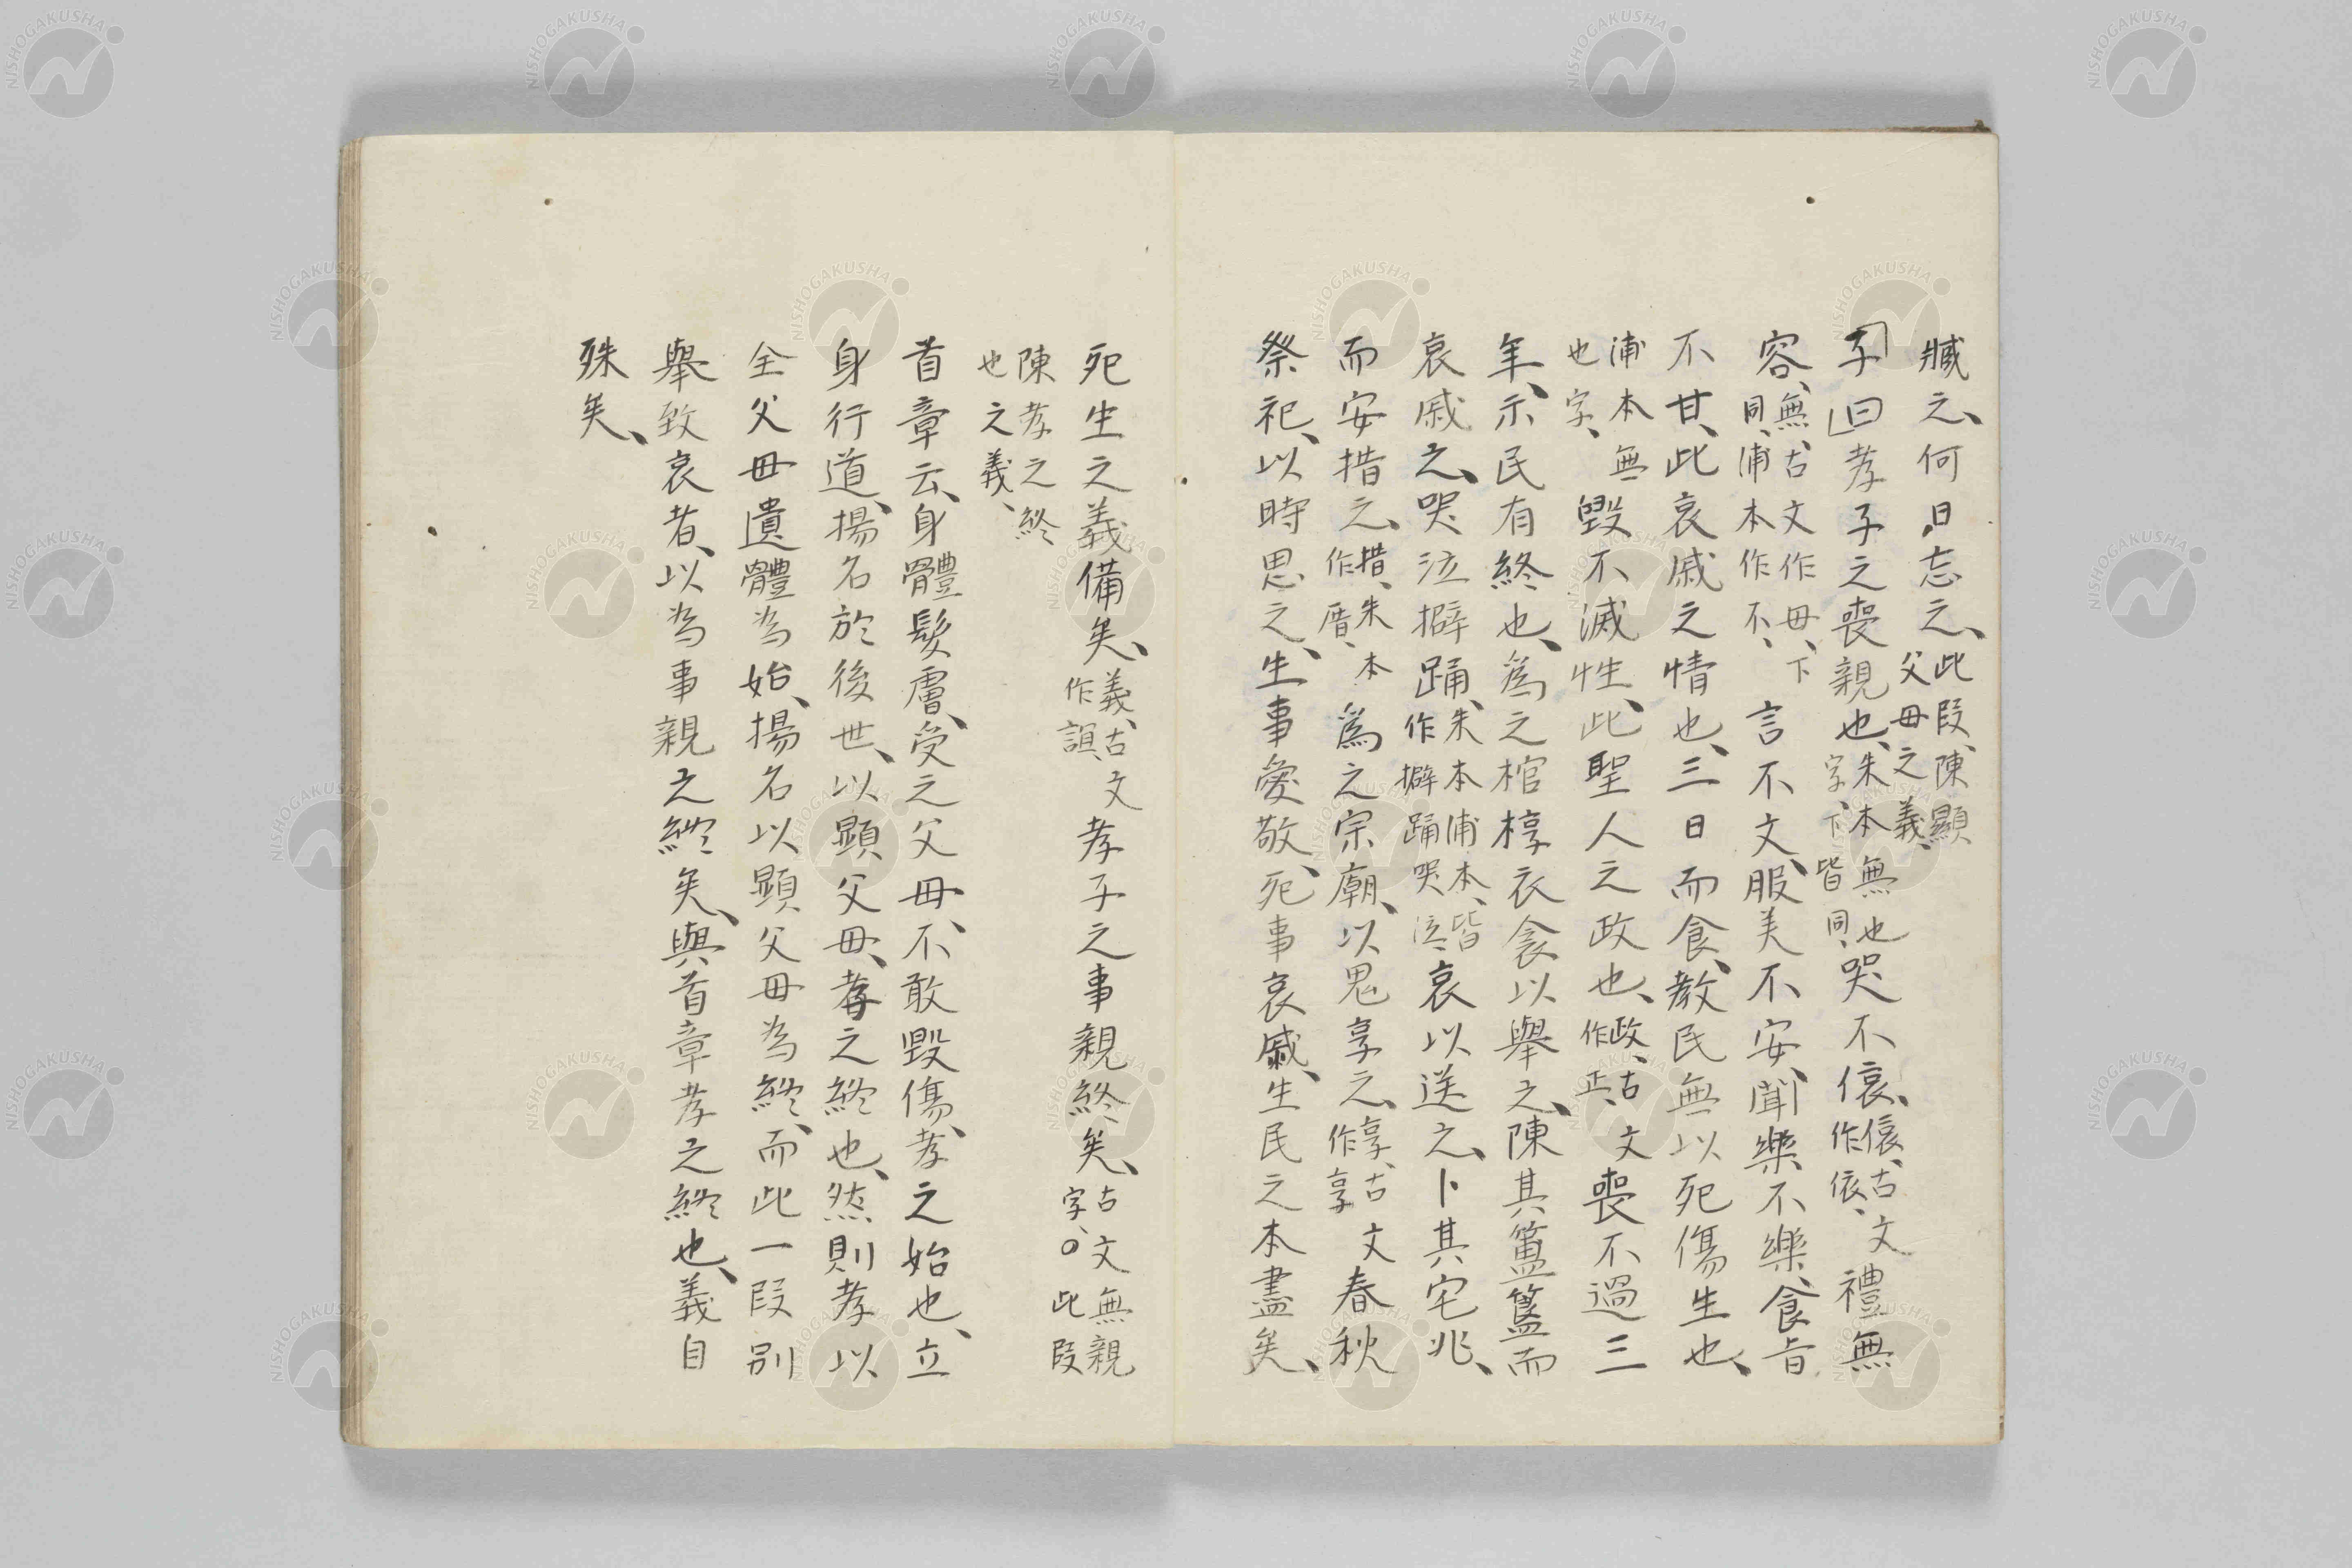 臧之、何日忘之、此叚、陳顯父母之義、
「子」曰孝子之喪親也、朱本無也字、下皆同、哭不偯、偯、古文作依、禮無
容、無、古文作毋、下同、浦本作不、言不文、服美不安、聞樂不樂、食旨
不甘、此哀戚之情也、三日而食、教民無以死傷生也、
浦本無也字、毀不滅性、此聖人之政也、政、古文作正、喪不過三
年、示民有終也、爲之棺椁衣衾以舉之、陳其簠簋而
哀戚之、哭泣擗踊、朱本浦本、皆作擗踊哭泣、哀以送之、卜其宅兆、
而安措之、措、朱本作厝、爲之宗廟、以鬼享之、享、古文作亨春秋
祭祀、以時思之、生事愛敬、死事哀戚、生民之本盡矣、
死生之義備矣、義、古文作誼、孝子之事親終矣、古文無親字、○此叚
陳孝之終也之義、
首章云、身體髮膚、受之父母、不敢毀傷、孝之始也、立
身行道、揚名於後世、以顯父母、孝之終也、然則孝以
全父母遺體為始、揚名以顯父母為終、而此一叚別
舉致哀者、以為事親之終矣、與首章孝之終也、義自
殊矣、
NISHOGAKUSHA